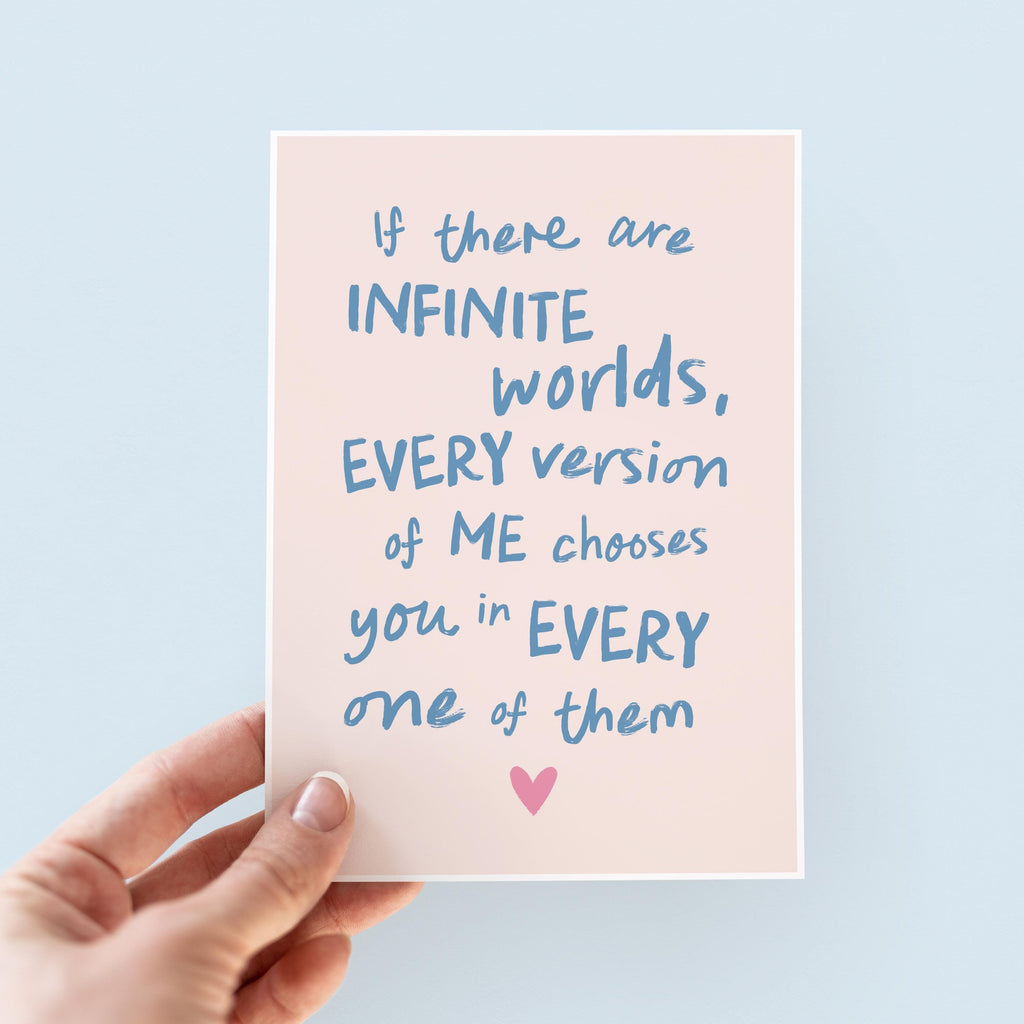 If there are
INFINITE
worlds,
EVERY version
of ME chooses
you in EVERY
one of them